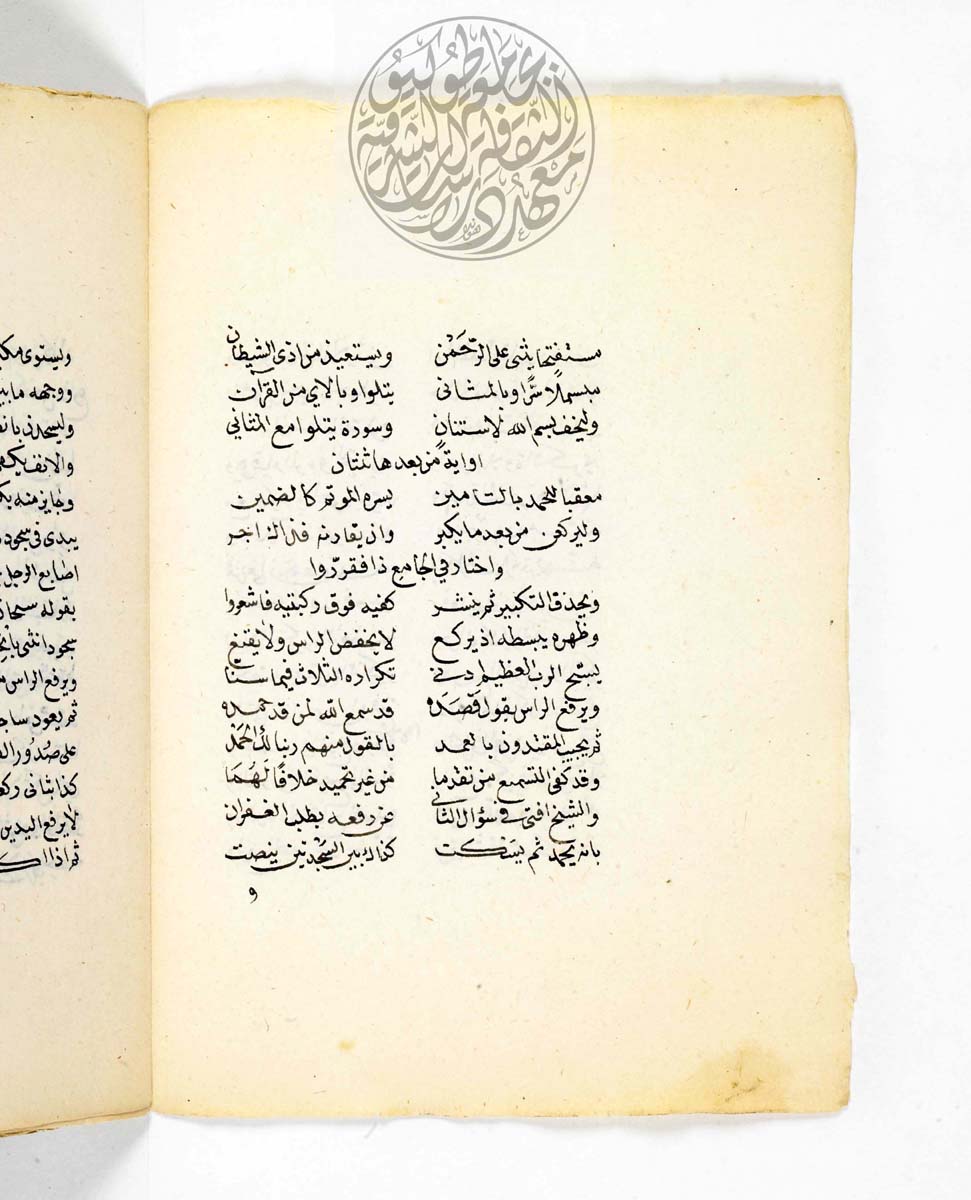 مستفتحا يثنى على الرّحَمْن ويستعيذ من اذى الشيطان
مبسملاً سرًّا وبالمثانى يتلوا وبالاي من القران
وليخف بسم الله لاستنان وسورة يتلوا مع المثاني
او اية من بعدها ثنتان
معقبا للحمد بالتامين يسره الموتم كالضمين
وليركعن من بعد ما يكبر وان يقارنه فذاك اجر
واختار في الجامع ذا فقرّروا
ويحذف التكبير ثم ينشر كفيه فوق ركبتيه فاشعروا
وظهره يبسطه اذ يركع لا يخفض الراس ولا يقنع
يسبّح الرب العظيم تكراره الثلاث فيما سنّا
ويرفع الراس بقول قَصَدَه قد سمع الله لمن قد حمده
ثم يجيب المقتدون بالعمد بالقول منهم ربنا لك الحَمْد
وقد كفى المسمع من تقدما من غير تحميد خلافًا لَهُمَا
والشيخ افتى في سؤال الثانى عن رفعه يطلب الغفران
بانه يحمد ثم يسكت كذاك بين السَّجدتين ينصت
و
ويستوى
ووجهه ما
وليسجدن
والانف
وجايز منه
يبدى في سجود
اصابع الرجل
بقوله سبحان
سجود انثى
ويرفع الراس
ثم يعود ساجد
على صُدُور
كذا ثانى
لا يرفع اليدين
ثم اذا
معهد الثقافة والدراسات الشرقية جامعة طوكيو